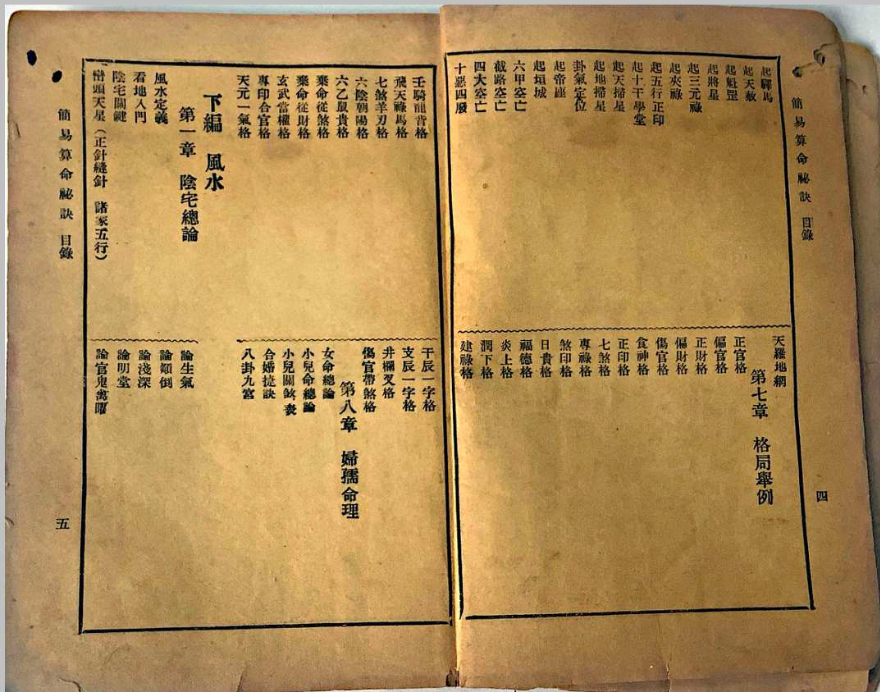 簡易算命祕訣 目錄
四
起驛馬
起天赦
起魁罡
起將星
起三元祿
起夾祿
起五行正印
起十干學堂
起天掃星
起地掃星
卦氣定位
起帝座
起垣城
六甲空亡
截路空亡
四大空亡
十惡四廢
天羅地網
第七章 格局舉例
正官格
偏官格
正財格
偏財格
傷官格
食神格
正印格
七煞格
專祿格
煞印格
日貴格
福德格
炎上格
潤下格
建祿格
壬騎龍背格
飛天祿馬格
七煞羊刃格
六陰朝陽格
六乙鼠貴格
棄命從煞格
棄命從財格
玄武當權格
專印合官格
天元一氣格
干辰一字格
支辰一字格
井欄叉格
傷官帶煞格
第八章 婦孺命理
女命總論
小兒命總論
小兒關煞表
合婚捷訣
八卦九宮
下編 風水
第一章 陰宅總論
風水定義
看地入門
陰宅關鍵
巒頭天星（正針縫針 諸家五行）
論生氣
論顛倒
論淺深
論明堂
論官鬼禽曜
簡易算命祕訣 目錄
五